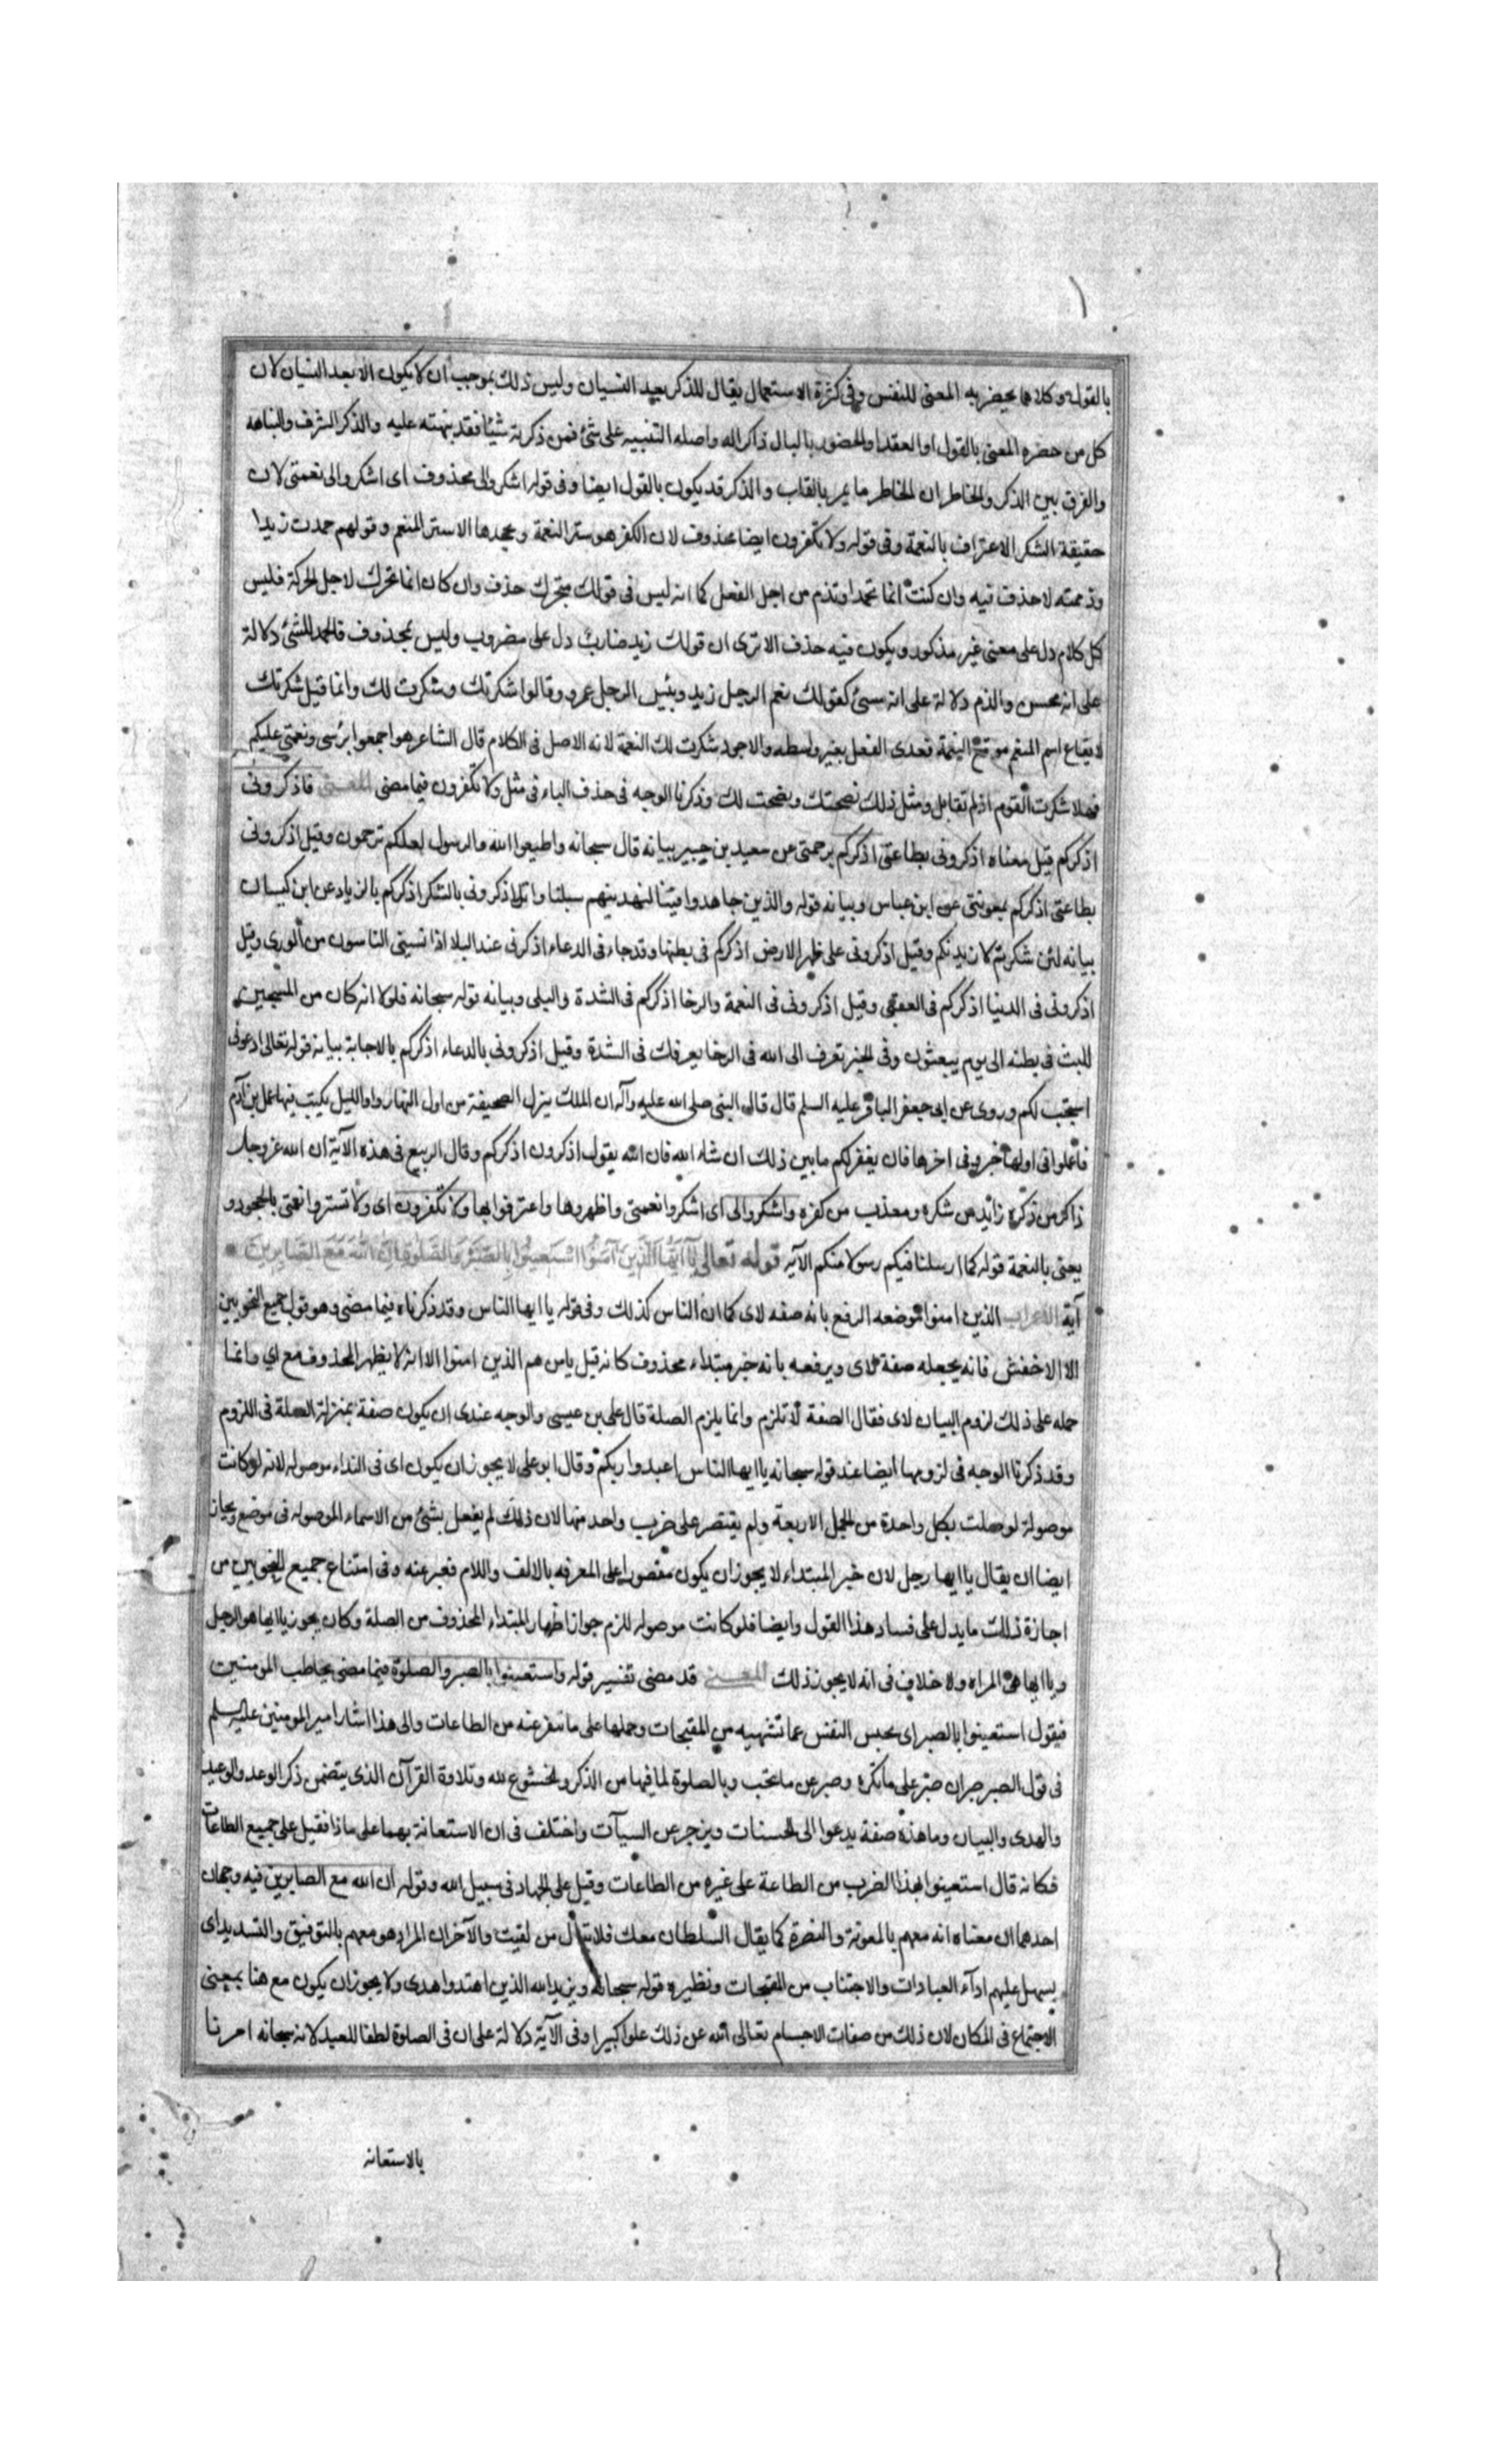 بالقول وكلاهما يحضر به المعنى للنفس وفى كثرة الاستعمال يقال للذكر بعد النسيان وليس ذلك بموجب ان لا يكون الا بعد النسيان لان
كل من حضره المعنى بالقول او العقد او الحضور بالبال ذاكر له واصله التنبيه على شئ فمن ذكر له شيئا فقد نبهته عليه والذكر الشرف والنباهه
والفرق بين الذكر والخاطر ان الخاطر ما يمر بالقلب والذكر قد يكون بالقول ايضا وفى قوله اشكروا لى محذوف اى اشكروا لى نعمتى لان
حقيقة الشكر الاعتراف بالنعمة وفى قوله ولا تكفرون ايضا محذوف لان الكفر هو ستر النعمة وجحدها لا ستر المنعم وقولهم حمدت زيدا
وذممته لا حذف فيه وان كنت انما تحمد او تذم من اجل الفعل كما انه ليس فى قولك متحرك حذف وان كان انما تحرك لاجل الحركة فليس
كل كلام دل على معنى غير مذكور ويكون فيه حذف الا ترى ان قولك زيد ضارب دل على مضروب وليس بمحذوف فالحمد للشئ دلالة
على انه محسن والذم دلالة على انه مسئ كقولك نعم الرجل زيد وبئس الرجل عمرو وقالوا شكرتك وشكرت لك وانما قيل شكرتك
لايقاع اسم المنعم موقع النعمة فعدى الفعل بغير واسطه والاجود شكرت لك النعمة لانه الاصل فى الكلام قال الشاعر هوا جمعوا بؤسى ونعمتى عليكم
فهلا شكرت القوم اذ لم تقاتل ومثل ذلك نصحتك ونصحت لك وذكرنا الوجه فى حذف الياء فى مثل ولا تكفرون فيما مضى المعنى فاذكرونى
اذكركم قيل معناه اذكرونى بطاعتى اذكركم برحمتى عن سعيد بن جبير بيانه قال سبحانه واطيعوا الله والرسول لعلكم ترحمون وقيل اذكرونى
بطاعتى اذكركم بمعونتى عن ابن عباس وبيانه قوله والذين جاهدوا فينا لنهدينهم سبلنا وقيل اذكرونى بالشكر اذكركم بالزياد عن ابن كيسان
بيانه لئن شكرتم لازيدنكم وقيل اذكرونى على ظهر الارض اذكركم فى بطنها وقد جاء فى الدعاء اذكرنى عند البلا اذا نسيتى الناسون من الورى وقيل
اذكرونى فى الدنيا اذكركم فى العقبى وقيل اذكرونى فى النعمة والرخا اذكركم فى الشدة والبلى وبيانه قوله سبحانه فلولا انه كان من المسبحين
للبث فى بطنه الى يوم يبعثون وفى الخبر تعرف الى الله فى الرخا يعرفك فى الشدة وقيل اذكرونى بالدعاء اذكركم بالاجابة بيانه قوله تعالى ادعونى
استجب لكم وروى عن ابى جعفر الباقر عليه السلم قال قال النبى صلى الله عليه وآله ان الملك ينزل الصحيفة من اول النهار واول الليل يكتب فيها عمل بن آدم
فاعملوا فى اولها خيرا وفى اخرها فان يغفر لكم ما بين ذلك ان شاء الله فان الله يقول اذكرون اذكركم وقال الربيع فى هذه الآية ان الله عز وجل
ذاكر من ذكره زائد من شكره ومعذب من كفره واشكروا لى اى اشكروا نعمتى واظهروها واعترفوا بها ولا تكفرون اى ولا تستروا نعمتى بالجحود و
يعنى بالنعمة قوله كما ارسلنا فيكم رسولا منكم الآيه قوله تعالى يا ايها الذين آمنوا استعينوا بالصبر والصلوة ان الله مع الصابرين
آية الاعراب الذين امنوا موضعه الرفع بانه صفه لاى كما ان الناس كذلك وفى قوله يا ايها الناس وقد ذكرناه فيما مضى وهو قول جميع النحويين
الا الاخفش فانه يجعله صفة لاى ويرفعه بانه خبر مبتداء محذوف كانه قيل يا من هم الذين امنوا الا انه لا يظهر المحذوف مع اي وانما
حمله على ذلك لزوم البيان لاى فقال الصفة لا تلزم وانما يلزم الصلة قال على بن عيسى والوجه عندى ان يكون صفة بمنزلة الصلة فى اللزوم
وقد ذكرنا الوجه فى لزومها ايضا عند قوله سبحانه يا ايها الناس اعبدوا ربكم وقال ابو على لا يجوز ان يكون اى فى النداء موصوله لانه لو كانت
موصولة لوصلت بكل واحدة من الجمل الاربعة ولم يقتصر على ضرب واحد منها لان ذلك لم يفعل بشئ من الاسماء الموصوله فى موضع ولجاز
ايضا ان يقال يا ايها رجل لان خبر المبتداء لا يجوز ان يكون مقصورا على المعرفه بالالف واللام فغير عنه وفى امتناع جميع النحويين من
اجازة ذلك ما يدل على فساد هذا القول وايضا فلو كانت موصوله للزم جواز اظهار المبتداء المحذوف من الصلة وكان يجوز يا ايها هو الرجل
ويا ايها هى المراه ولا خلاف فى انه لا يجوز ذلك المعنى قد مضى تفسير قوله واستعينوا بالصبر والصلوة فيما مضى يخاطب المومنين
فيقول استعينوا بالصبر اى بحبس النفس عما تشتهيه من المقبحات وحملها على ما تنفر عنه من الطاعات والى هذا اشار امير المومنين عليه السلم
فى قوله الصبر صبران صبر على ما تكره وصبر عن ما تحب وبالصلوة لما فيها من الذكر والخشوع لله وتلاوة القرآن الذى يتضمن ذكر الوعد والوعيد
والهدى والبيان وما هذه صفة يدعوا الى الحسنات ويزجر عن السيآت واختلف فى ان الاستعانة بهما على ماذا فقيل على جميع الطاعات
فكانه قال استعينوا بهذا الضرب من الطاعة على غيره من الطاعات وقيل على الجهاد فى سبيل الله وقوله ان الله مع الصابرين فيه وجهان
احدهما ان معناه انه معهم بالمعونة والنصرة كما يقال السلطان معك فلا تبال من لقيت والآخر ان المراد هو معهم بالتوفيق والتسديد اى
يسهل عليهم اداء العبادات والاجتناب من المقبحات ونظيره قوله سبحانه ويزيد الله الذين اهتدوا هدى ولا يجوز ان يكون مع هنا بمعنى
الاجتماع فى المكان لان ذلك من صفات الاجسام تعالى الله عن ذلك علوا كبيرا وفى الآية دلالة على ان فى الصلوة لطفا للعبد لانه سبحانه امرنا
بالاستعانه